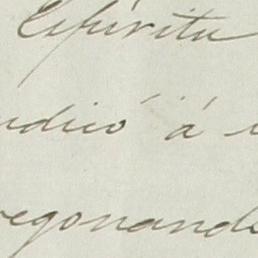 Espíritu
ndicó á
egonand